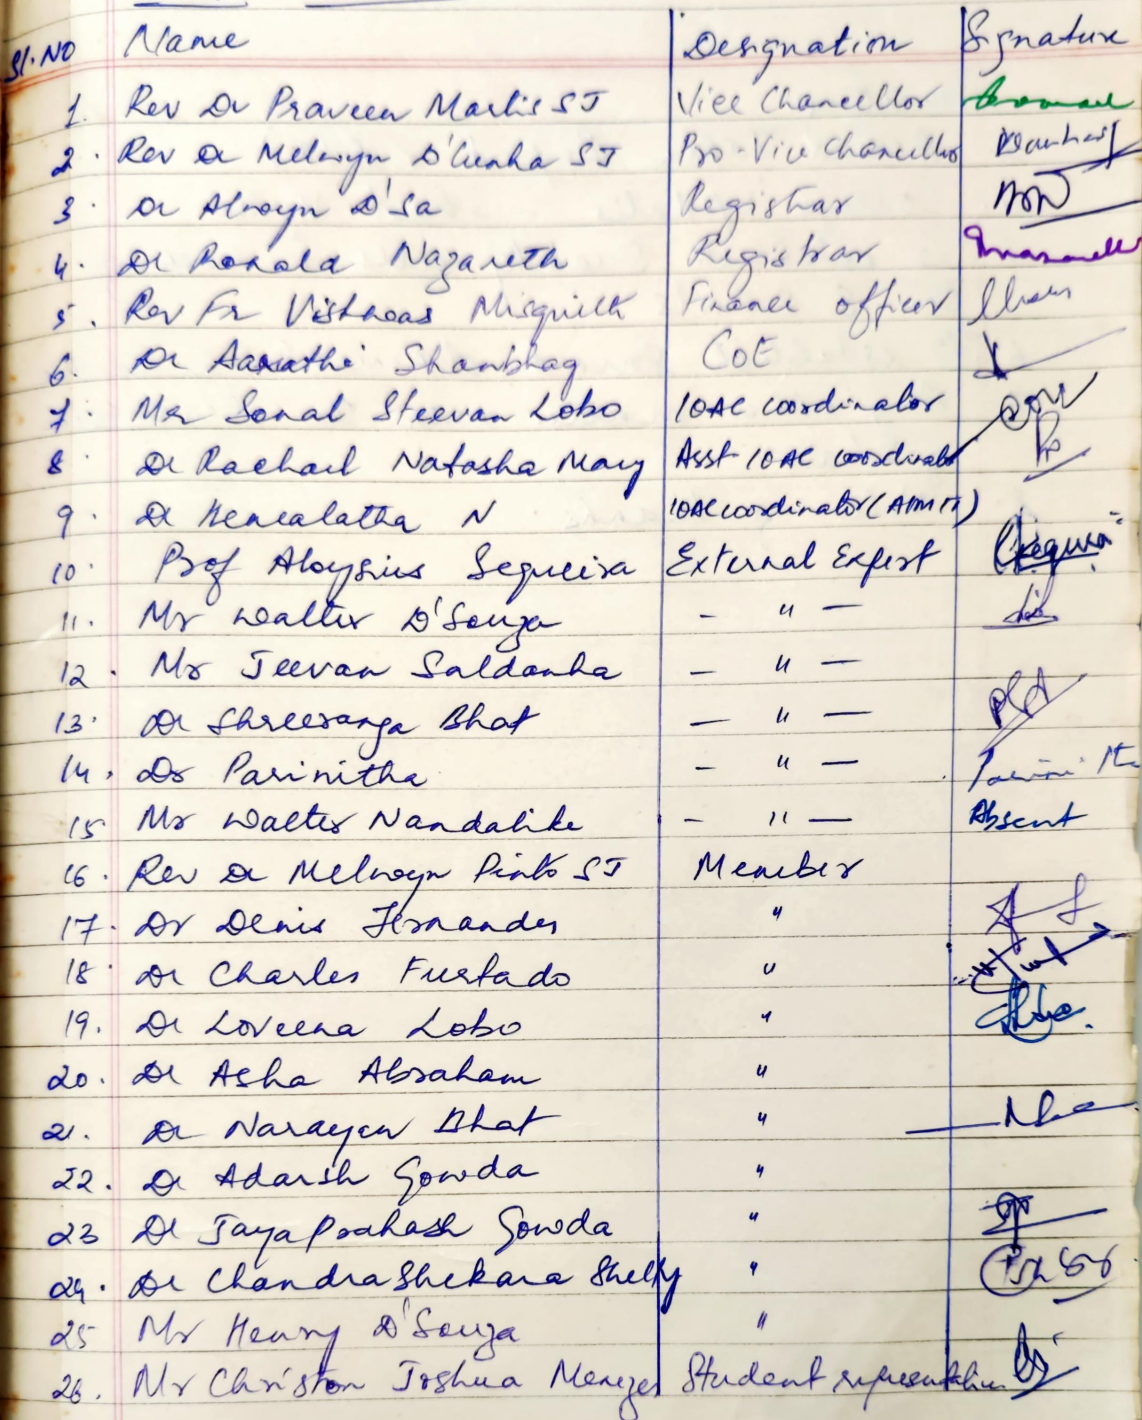 Sl.No Name Designation Signature
1. Rev Dr Praveen Martis SJ Vice Chancellor
2. Rev Dr Melwyn D'Cunha SJ Pro-Vice Chancellor
3. Dr Alwyn D'Sa Registrar
4. Dr Ronald Nazareth Registrar
5. Rev Fr Vishwas Misquith Finance officer
6. Dr Aarathi Shanbhag CoE
7. Ms Sonal Steevan Lobo IQAC coordinator
8. Dr Rachael Natasha Mary Asst IQAC coordinator
9. Dr Hemalatha N IQAC coordinator (AIMIT)
10. Prof Aloysius Sequeira External Expert
11. Mr Walter D'Souza - " -
12. Mr Jeevan Saldanha - " -
13. Dr Shreeranga Bhat - " -
14. Dr Parinitha - " -
15 Mr Walter Nandalike - " - Absent
16. Rev Dr Melwyn Pinto SJ Member
17. Dr Denis Fernandes "
18. Dr Charles Furtado "
19. Dr Loveena Lobo "
20. Dr Asha Abraham "
21. Dr Narayan Bhat "
22. Dr Adarsh Gowda "
23 Dr Jayaprakash Gowda "
24. Dr Chandra Shekara Shetty "
25 Mr Henry D'Souza "
26. Mr Christon Joshua Menezes Student representative